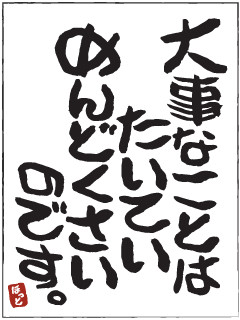 大事なことは
たいてい
めんどくさい
のです。
ほっと